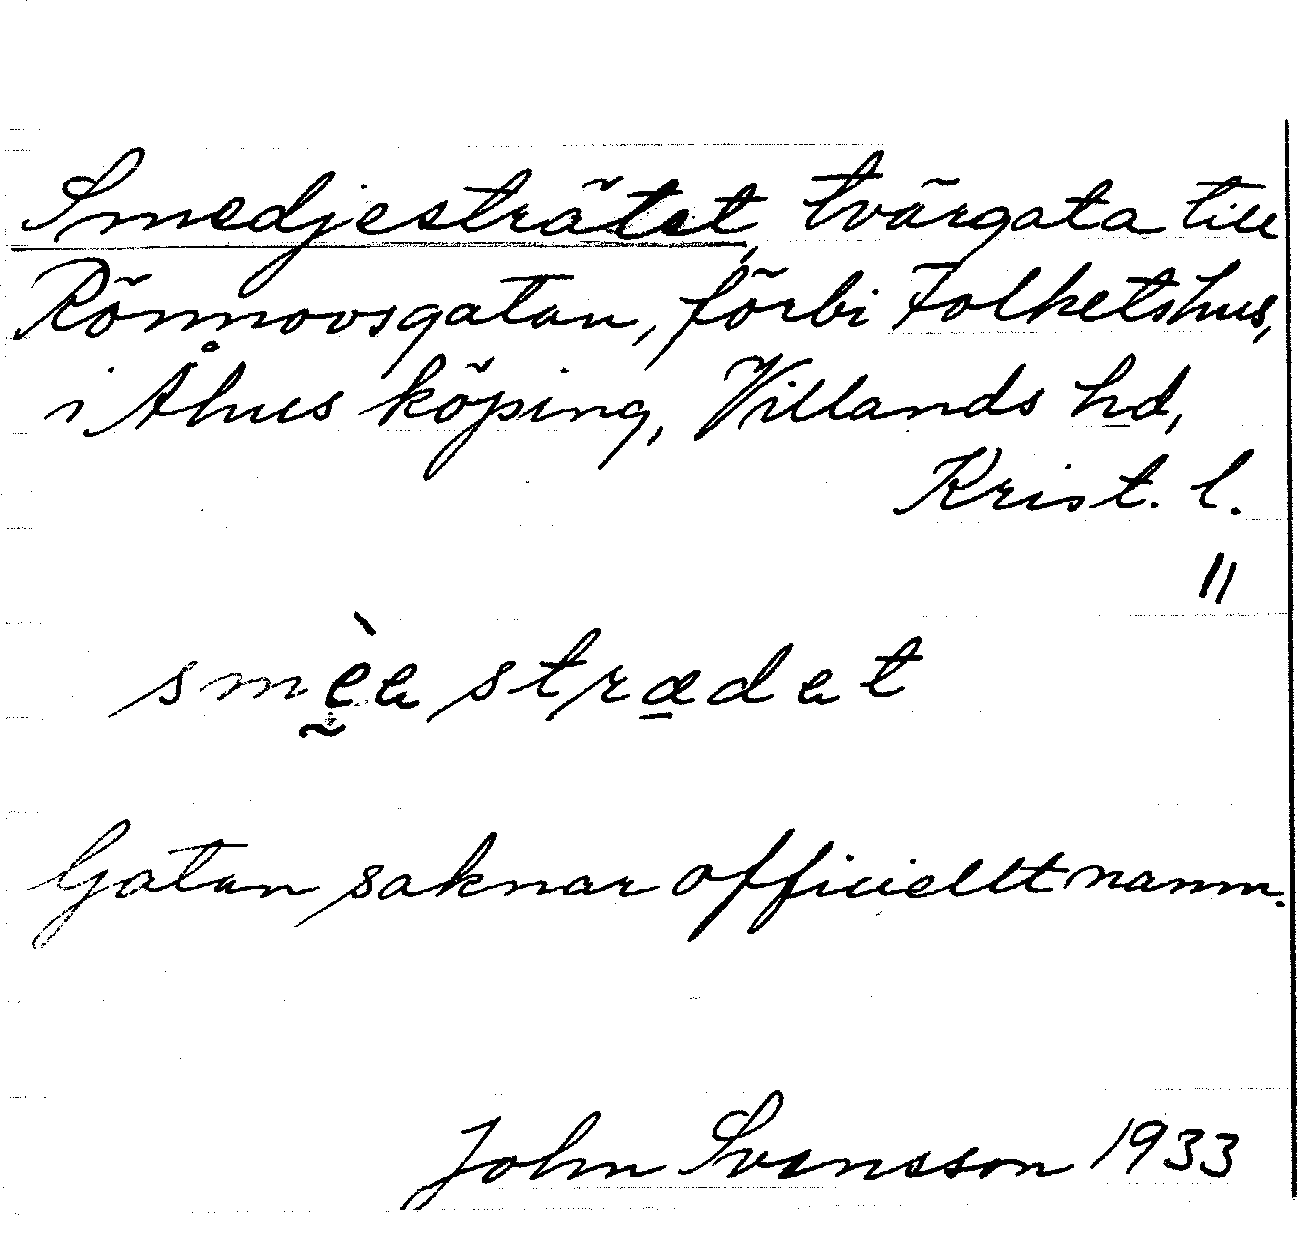 Smedjesträtet, tvärgata till
Rönnovsgatan, förbi Folketshus,
i Åhus köping, Villands hd,
Krist. l.
"
smḛ̀ə strædət
Gatan saknar officiellt namn.
John Svensson 1933